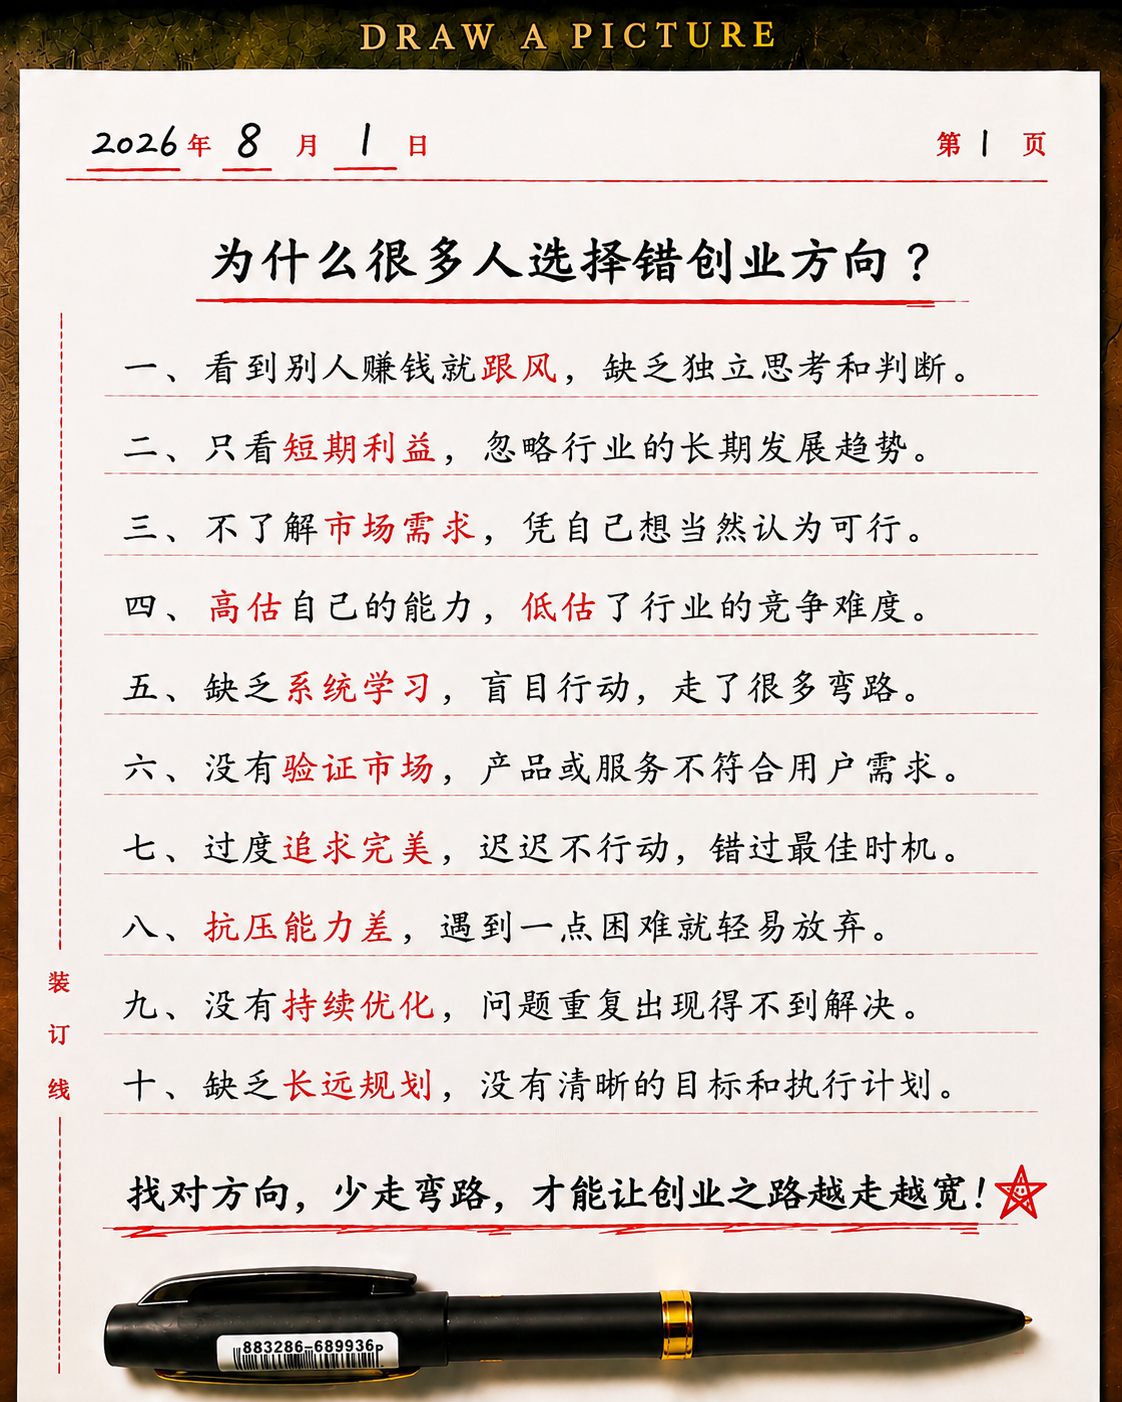 DRAW A PICTURE
2026年 8月 1日 第1页
为什么很多人选择错创业方向？
一、看到别人赚钱就跟风，缺乏独立思考和判断。
二、只看短期利益，忽略行业的长期发展趋势。
三、不了解市场需求，凭自己想当然认为可行。
四、高估自己的能力，低估了行业的竞争难度。
五、缺乏系统学习，盲目行动，走了很多弯路。
六、没有验证市场，产品或服务不符合用户需求。
七、过度追求完美，迟迟不行动，错过最佳时机。
八、抗压能力差，遇到一点困难就轻易放弃。
九、没有持续优化，问题重复出现得不到解决。
十、缺乏长远规划，没有清晰的目标和执行计划。
装订线
找对方向，少走弯路，才能让创业之路越走越宽！
883286-689936P